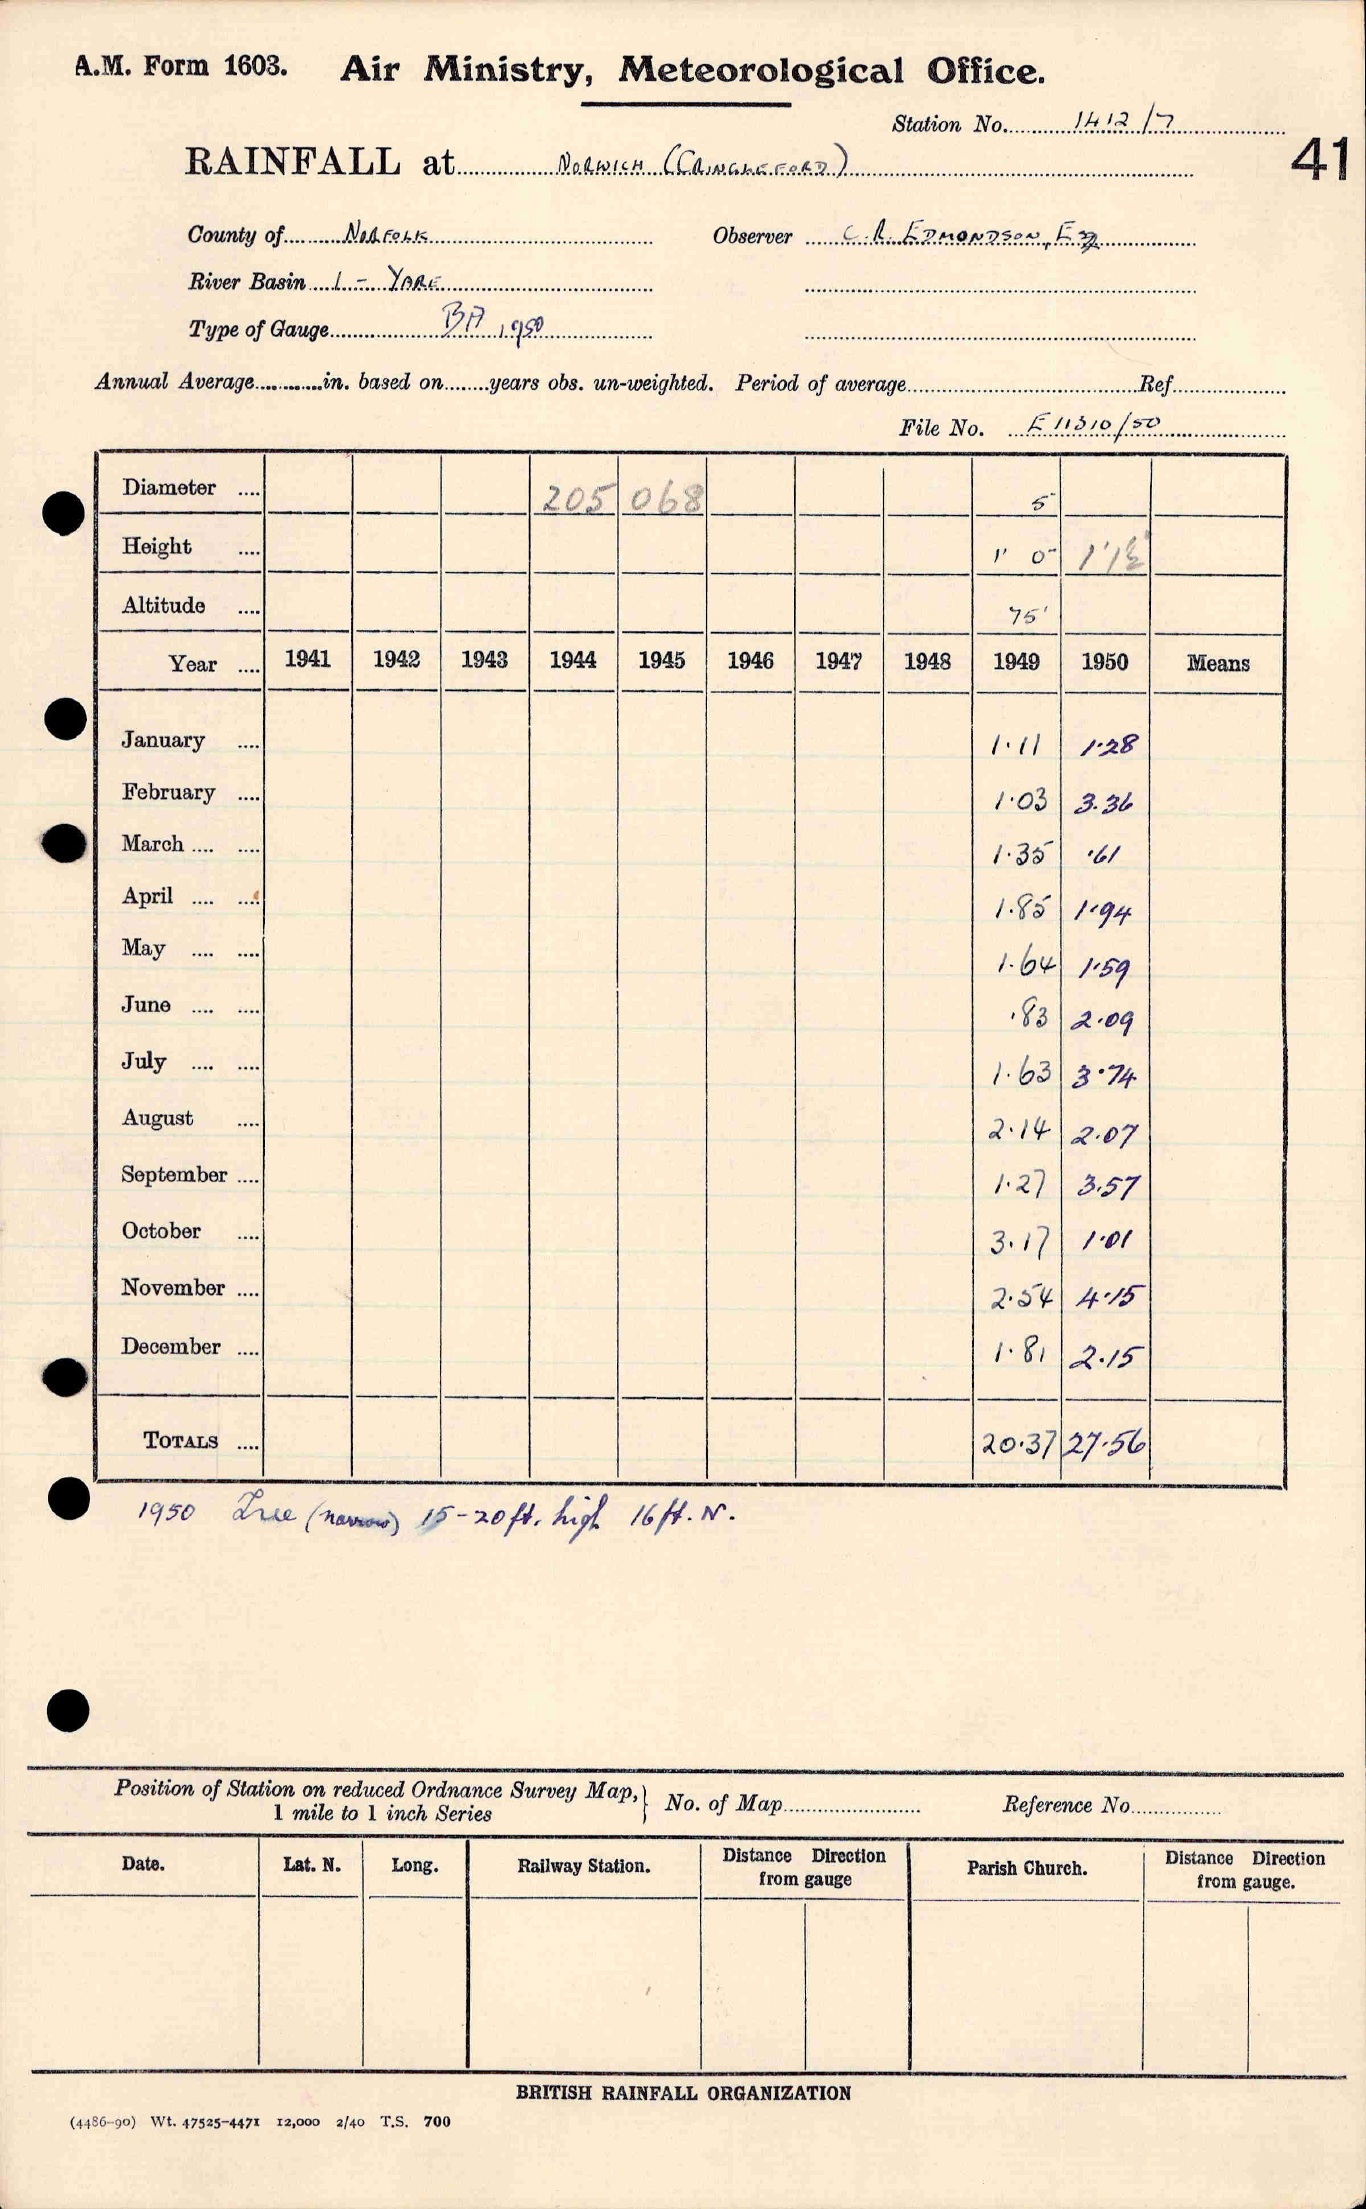 A.M. Form 1603. Air Ministry, Meteorological Office.
Station No. 1412/7
41
RAINFALL at NORWICH (CRINGLEFORD)
County of NORFOLK Observer C. R. EDMONDSON, Esq
River Basin 1 - YARE
Type of Gauge BA 1950
Annual Average in. based on years obs. un-weighted. Period of average Ref
File No. E 11310/50
Diameter 205 068 5
Height 1' 0" 1' 1½
Altitude 75'
Year 1941 1942 1943 1944 1945 1946 1947 1948 1949 1950 Means
January 1.11 1.28
February 1.03 3.36
March 1.35 .61
April 1.85 1.94
May 1.64 1.59
June .83 2.09
July 1.63 3.74
August 2.14 2.07
September 1.27 3.57
October 3.17 1.01
November 2.54 4.15
December 1.81 2.15
TOTALS 20.37 27.56
1950 Tree (narrow) 15-20ft. high 16ft. N.
Position of Station on reduced Ordnance Survey Map, 1 mile to 1 inch Series } No. of Map Reference No.
Date. Lat. N. Long. Railway Station. Distance Direction from gauge Parish Church. Distance Direction from gauge.
BRITISH RAINFALL ORGANIZATION
(4486-90) Wt. 47525-4471 12,000 2/40 T.S. 700